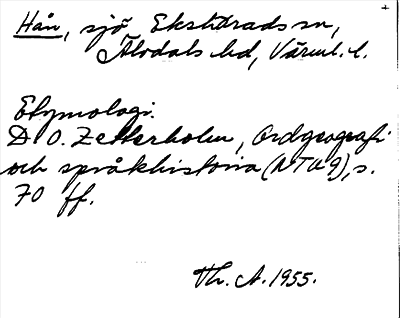 Hån, sjö Ekshärads sn,
Älvdals hd, Värml. l.
Etymologi.
D O. Zetterholm, Ordgeografi
och språkhistoria (NTU 9), s.
70 ff.
Th. A. 1955.